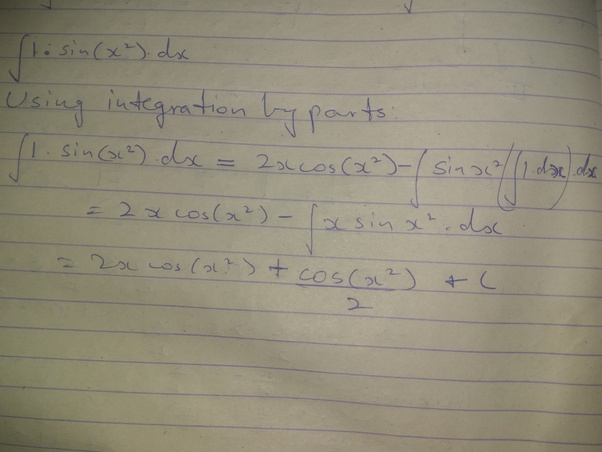 ∫1·sin(x²)·dx
Using integration by parts
∫1·sin(x²)·dx = 2x cos(x²) - ∫sin x² (∫1·dx)·dx
= 2x cos(x²) - ∫x sin x²·dx
= 2x cos(x²) + cos(x²)/2 + C